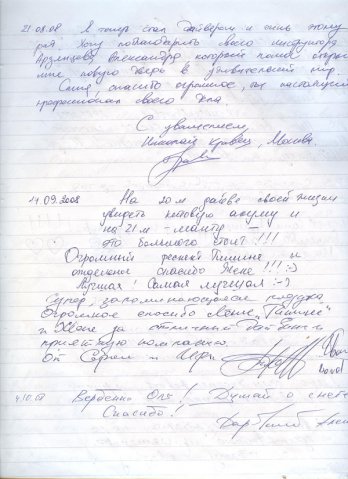 21.08.08 Я теперь стал дайвером и очень этому
рад. Хочу поблагодарить своего инструктора
Александра, который помог открыть
мне новую дверь в удивительный мир.
Саша, спасибо огромное, ты настоящий
профессионал своего дела.
С уважением,
Николай Кравец, Москва.
11.09.2008 На 20м дайве своей жизни
увидеть китовую акулу и
на 21м - манту -
это большого стоит!!!
Огромный респект Тишине и
отдельное спасибо Жене!!! :-)
Лучшая! Самая лучшая :-)
Супер, запоминающаяся
Огромное спасибо Саше "Тишине"
и Жене за отличный дайвинг
и приятную компанию.
От Сергея и
4.10.08 Вербенко Оля! Думай о
Спасибо!